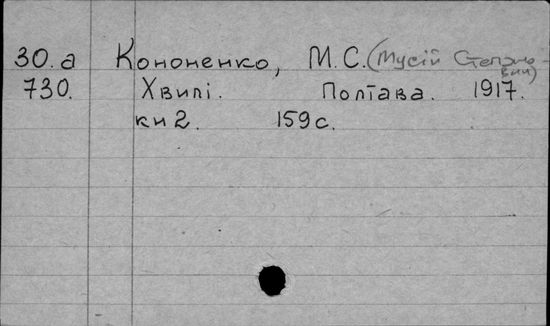 30.а Кононенко, М.С. (Мусій Степанович)
730. Хвилі. Полтава. 1917.
кн 2. 159 с.